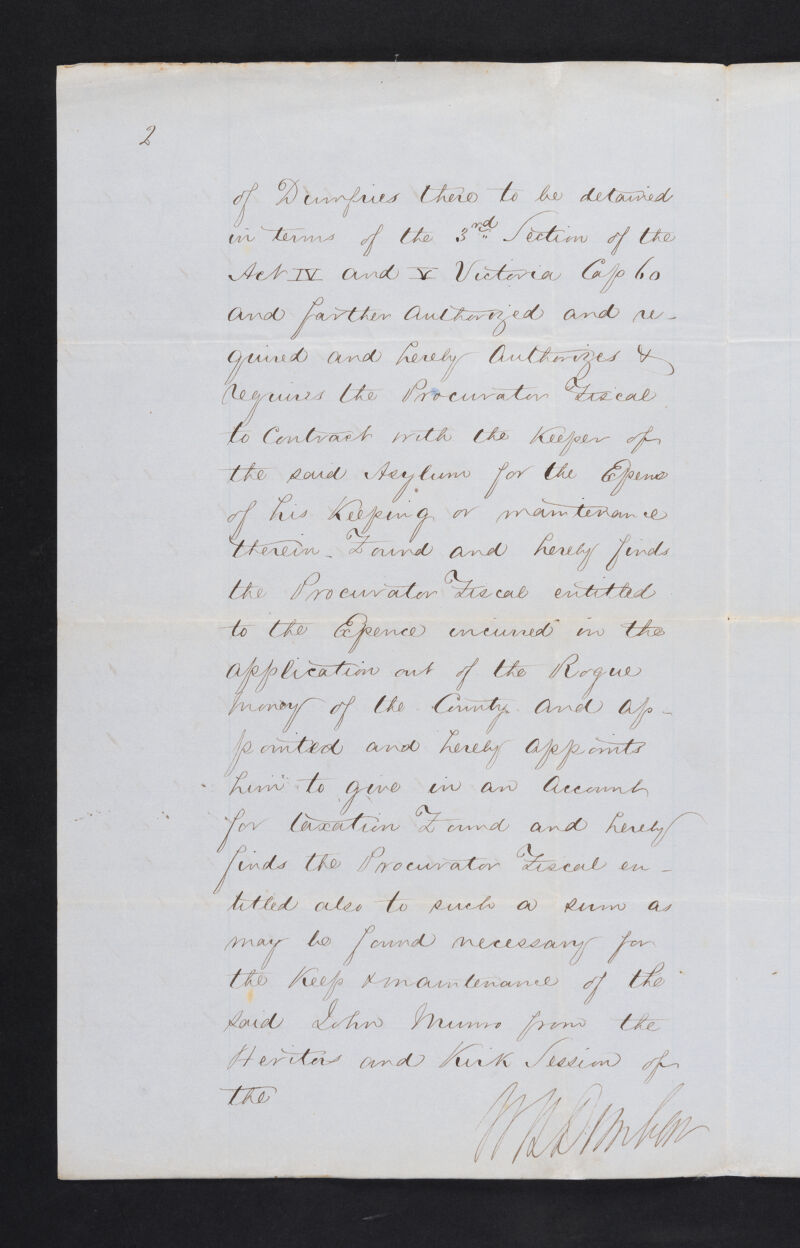 2
of Dumfries there to be detained
in terms of the 3rd Section of the
Act IV and V Victoria Cap 60
and farther Authorized and re-
quired and hereby Authorizes &
requires the Procurator Fiscal
to Contract with the Keeper of
the said Asylum for the Epens
of his Keeping or maintenance
therein. Found and hereby finds
the Procurator Fiscal entitled
to the Epence incurred in the
application out of the Rogue
Money of the County. And ap-
pointed and hereby appoints
him to give in an Account
for taxation Found and hereby
finds the Procurator Fiscal en-
titled also to such a sum as
may be found necessary for
the Keep & maintenance of the
said John Munro from the
Heritors and Kirk Session of
the
Dunbar